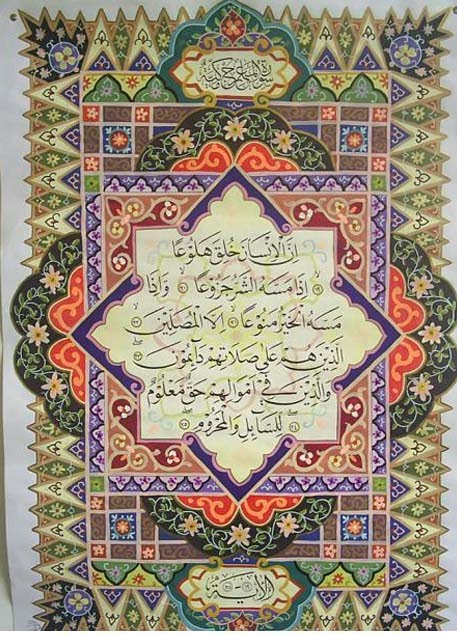 سورة المعارج مكية
إن الإنسان خلق هلوعا
١٩ إذا مسه الشر جزوعا ٢٠ وإذا
مسه الخير منوعا ٢١ إلا المصلين ٢٢
الذين هم على صلاتهم دائمون ٢٣
والذين في أموالهم حق معلوم
٢٤ للسائل والمحروم ٢٥
الآية